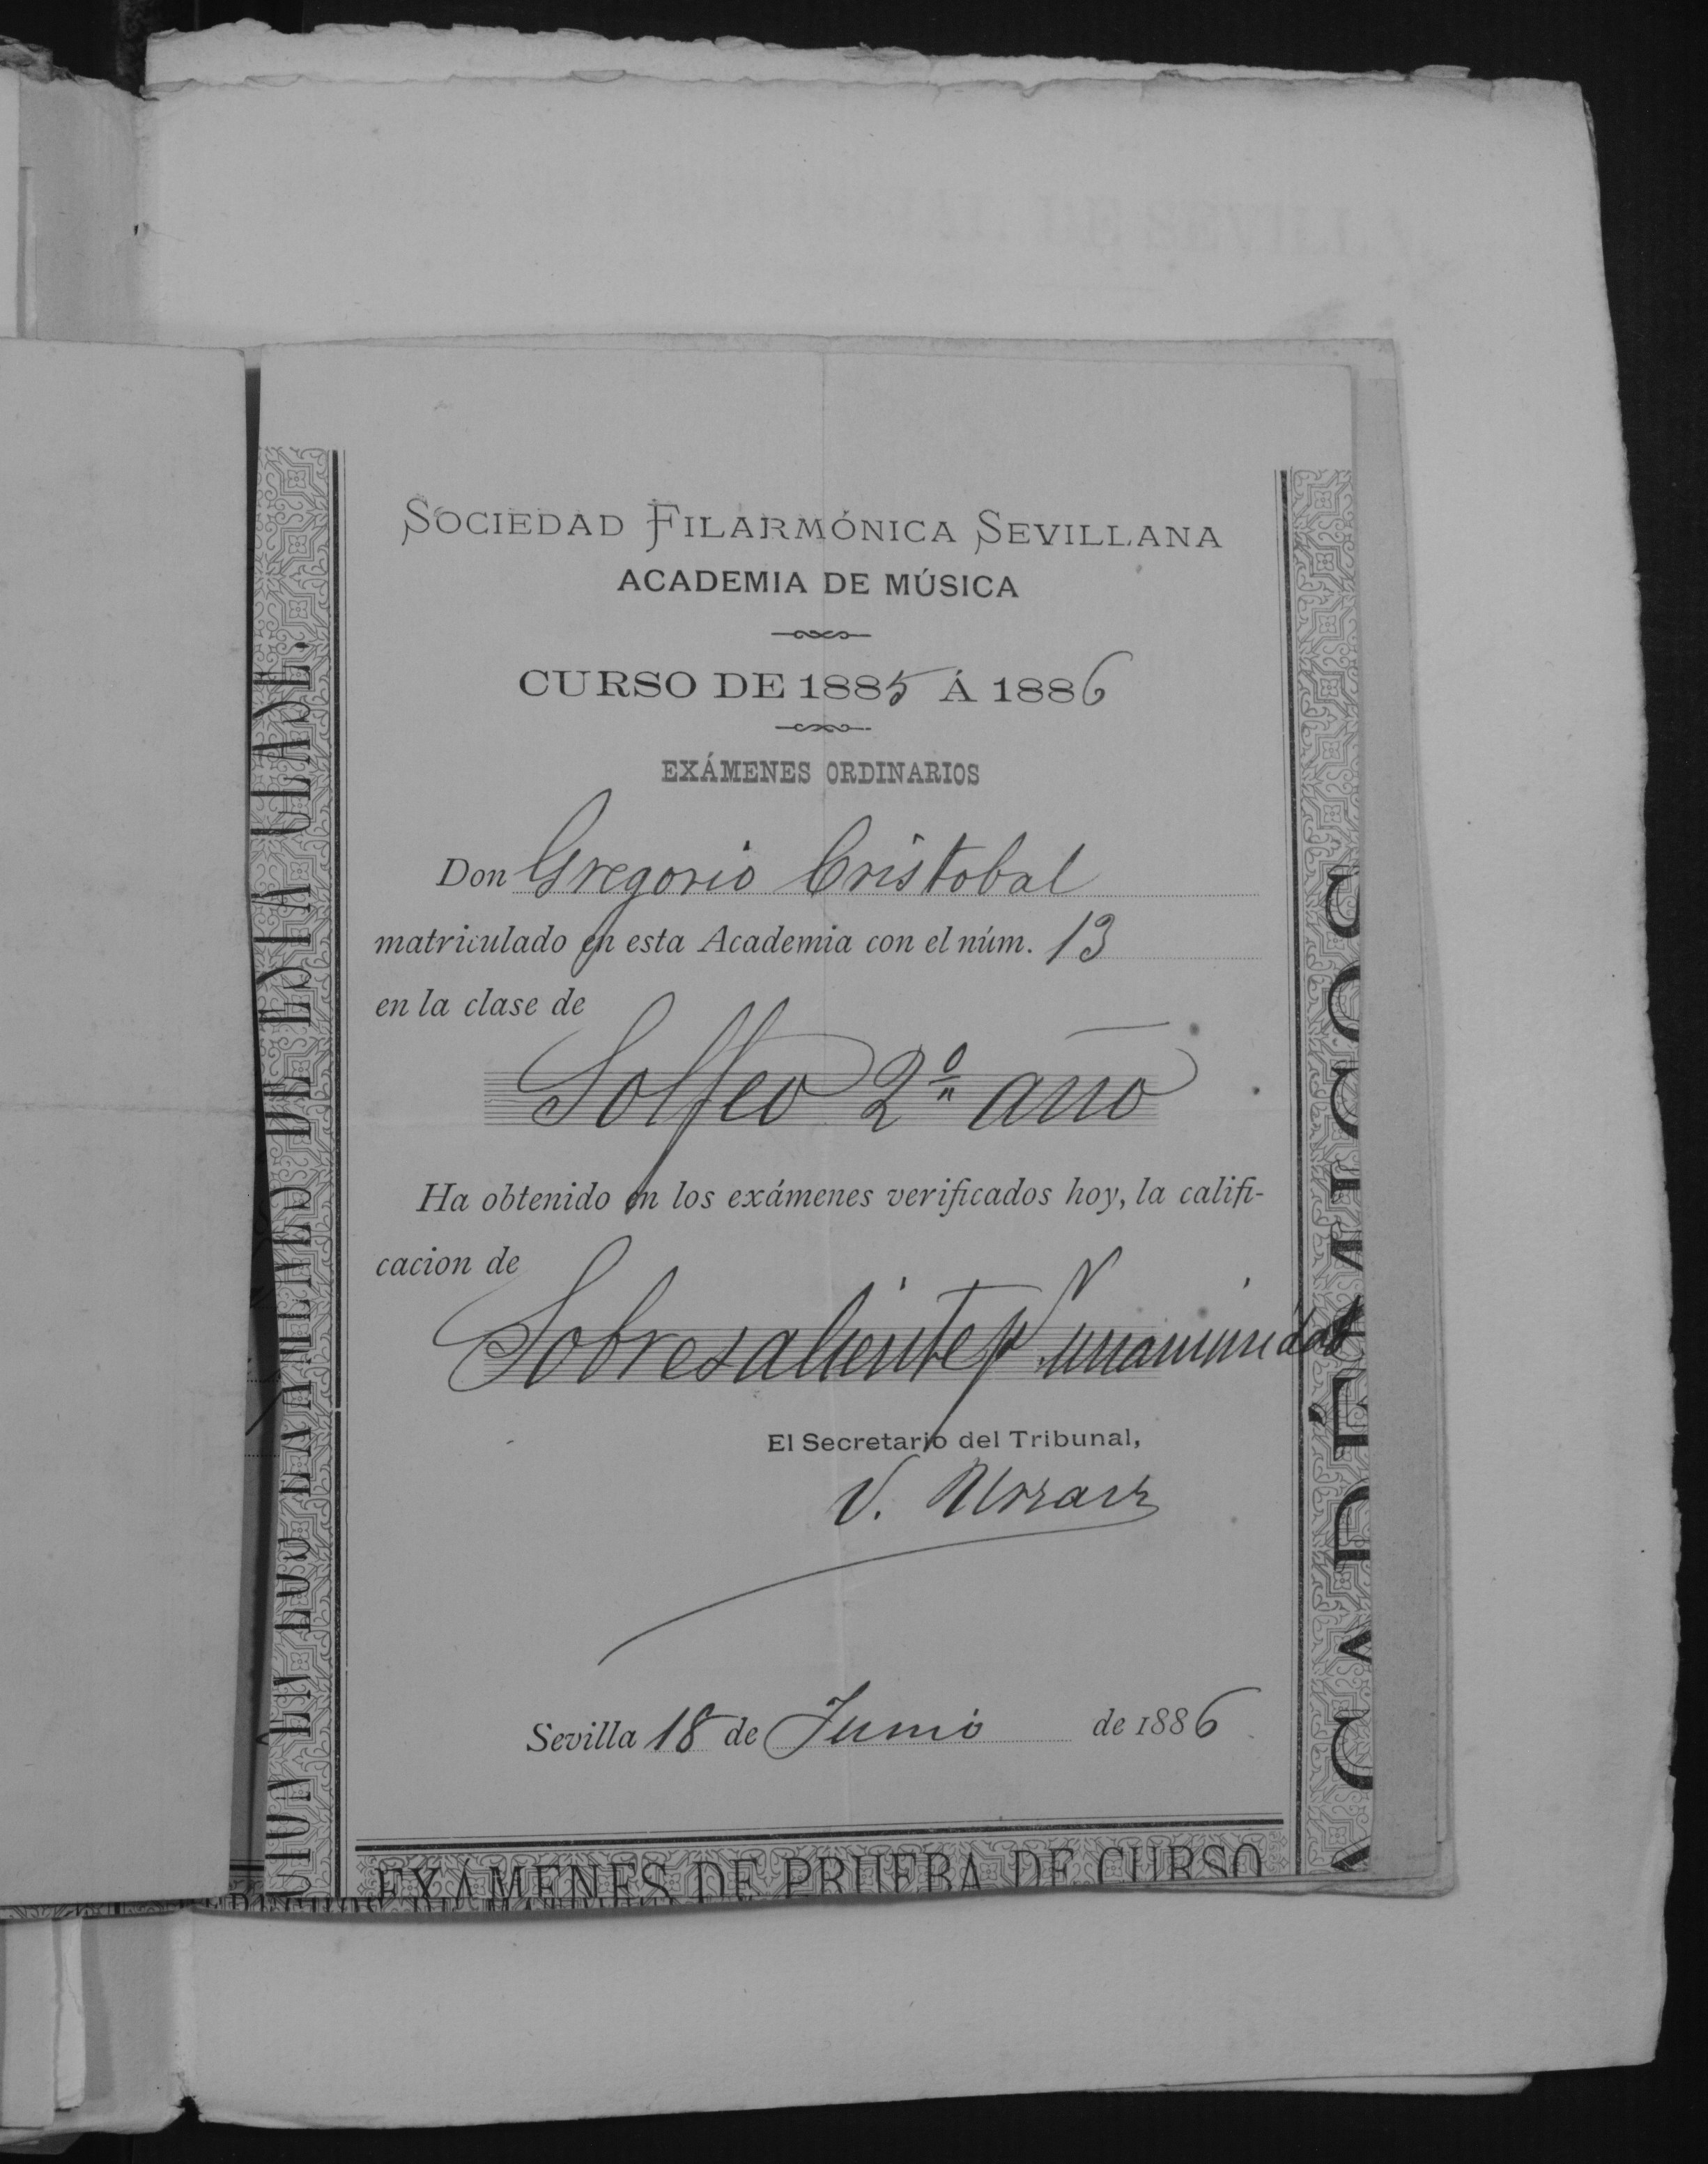 SOCIEDAD FILARMÓNICA SEVILLANA
ACADEMIA DE MÚSICA
CURSO DE 1885 Á 1886
EXÁMENES ORDINARIOS
Don Gregorio Cristobal
matriculado en esta Academia con el núm. 13
en la clase de
Solfeo 2º año
Ha obtenido en los exámenes verificados hoy, la califi-
cacion de
Sobresaliente pr unanimidad
El Secretario del Tribunal,
V.
Sevilla 18 de Junio de 1886
EXÁMENES DE PRUEBA DE CURSO